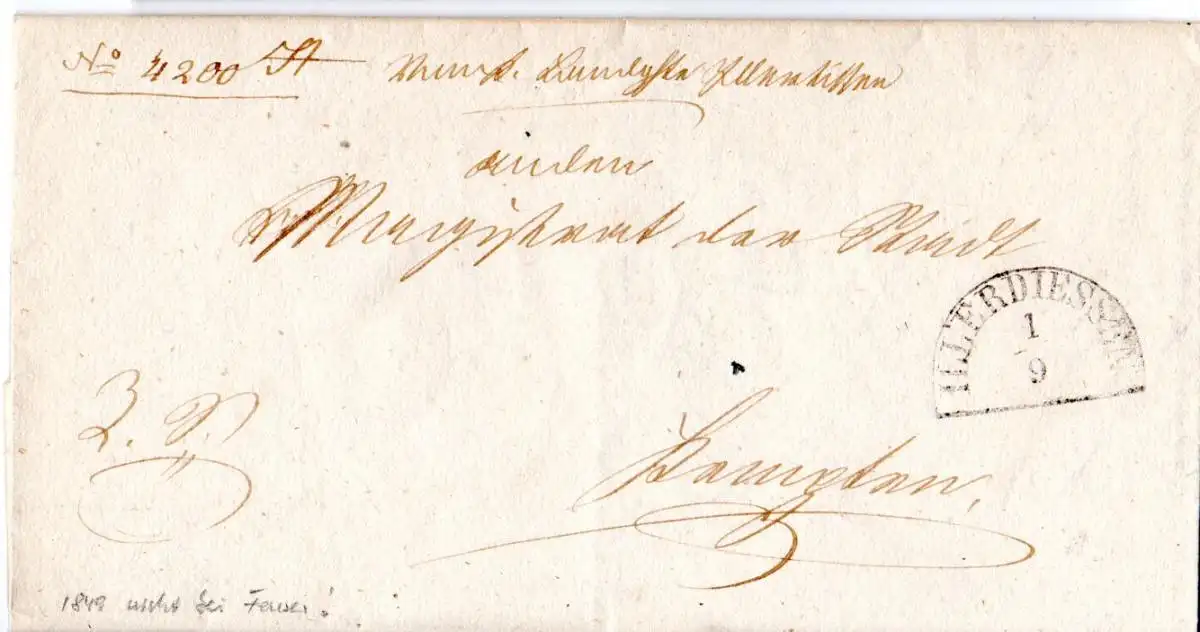 No 4200 St Vom k. Landgchte Illertissen
an den
Magistrat der Stadt
ILLERDIESSEN
1
9
Kempten.
1849 nicht bei Feuser!